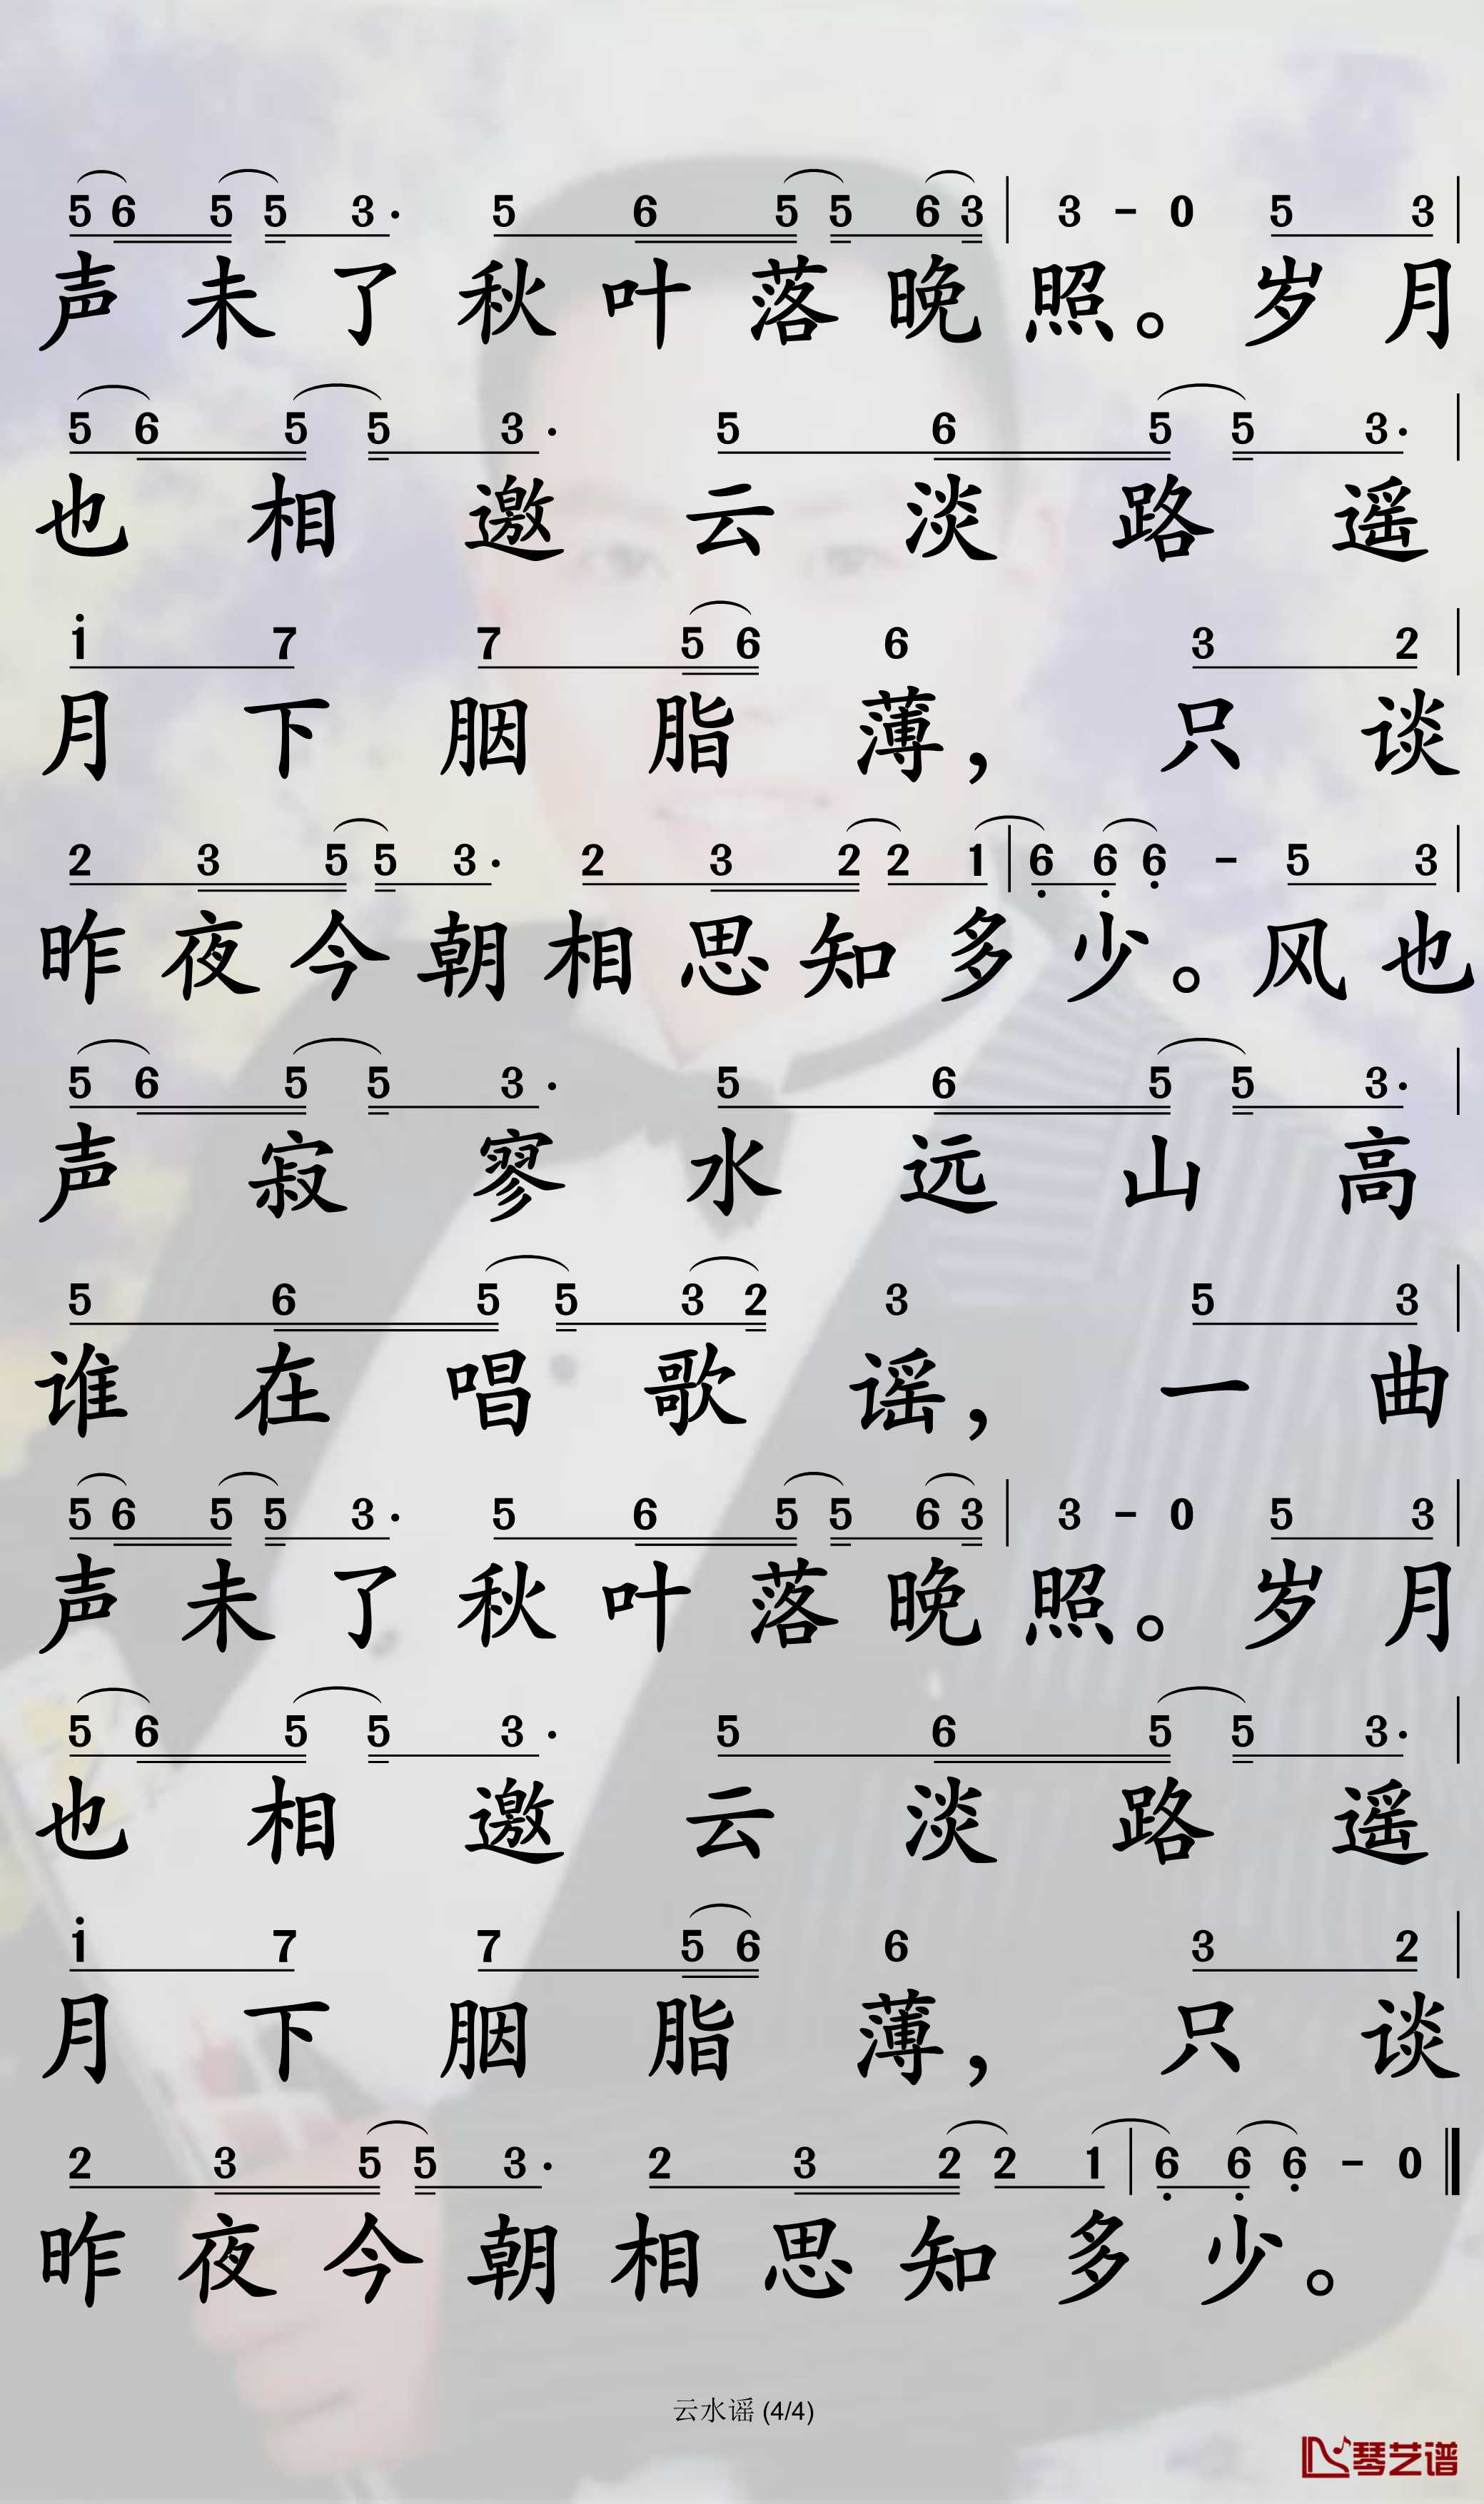 5 6 5 5 3· 5 6 5 5 6 3 | 3 - 0 5 3 |
声未了秋叶落晚照。岁月
5 6 5 5 3· 5 6 5 5 3· |
也相邀云淡路遥
i 7 7 5 6 6 3 2 |
月下胭脂薄，只谈
2 3 5 5 3· 2 3 2 2 1 | 6̣ 6̣ 6̣ - 5 3 |
昨夜今朝相思知多少。风也
5 6 5 5 3· 5 6 5 5 3· |
声寂寥水远山高
5 6 5 5 3 2 3 5 3 |
谁在唱歌谣，一曲
5 6 5 5 3· 5 6 5 5 6 3 | 3 - 0 5 3 |
声未了秋叶落晚照。岁月
5 6 5 5 3· 5 6 5 5 3· |
也相邀云淡路遥
i 7 7 5 6 6 3 2 |
月下胭脂薄，只谈
2 3 5 5 3· 2 3 2 2 1 | 6̣ 6̣ 6̣ - 0 ‖
昨夜今朝相思知多少。
云水谣 (4/4)
琴艺谱